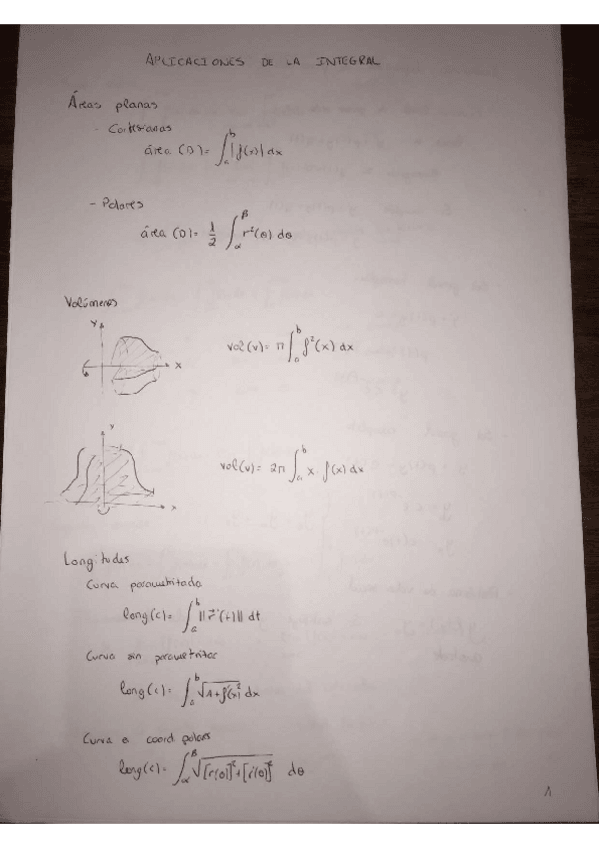 APLICACIONES DE LA INTEGRAL
Áreas planas
- Cartesianas
área (D) = ∫_a^b |f(x)| dx
- Polares
área (D) = 1/2 ∫_α^β r²(θ) dθ
Volúmenes
y
x
vol(v) = π ∫_a^b f²(x) dx
y
x
vol(v) = 2π ∫_a^b x · f(x) dx
Longitudes
Curva parametritada
long(c) = ∫_a^b ||r⃗'(t)|| dt
Curva sin parametritar
long(c) = ∫_a^b √(1+f'(x)²) dx
Curva a coord polares
long(c) = ∫_α^β √([r(θ)]²+[r'(θ)]²) dθ
1